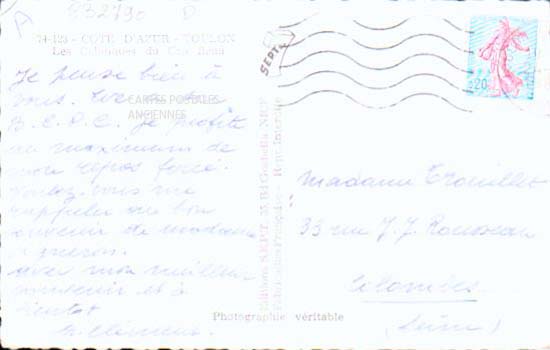 A 932790 D
74-123 - COTE D'AZUR - TOULON
Les Calanques du Cap Brun
Je pense bien à
vous.
CARTES POSTALES
ANCIENNES
Je profite
au maximum de
mon repos forcé.
Voulez-vous me
rappeler au bon
souvenir de madame
avec mon meilleur
souvenir et à
bientôt
Editions S.E.P.T. 35 Bd Gambetta NICE
Fabrication Française - Repr. Interdite
Photographie véritable
SEPT
0,20
madame Trouillet
33 rue J. J. Rousseau
Colombes
(Seine)